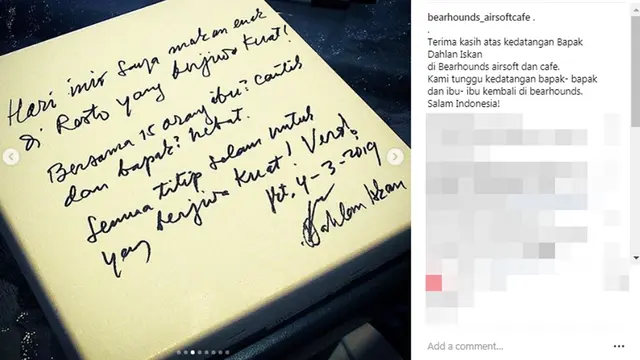 Hari ini saya makan enak
di Resto yang berjiwa kuat!
Bersama 15 orang ibu² cantik
dan bapak² hebat.
Semua titip salam untuk
yang berjiwa kuat!
Jkt, 4-3-2019
Dahlan Iskan
bearhounds_airsoftcafe .
.
Terima kasih atas kedatangan Bapak
Dahlan Iskan
di Bearhounds airsoft dan cafe.
Kami tunggu kedatangan bapak- bapak
dan ibu- ibu kembali di bearhounds.
Salam Indonesia!
Add a comment...